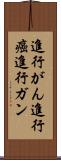 進行がん進行
癌進行ガン